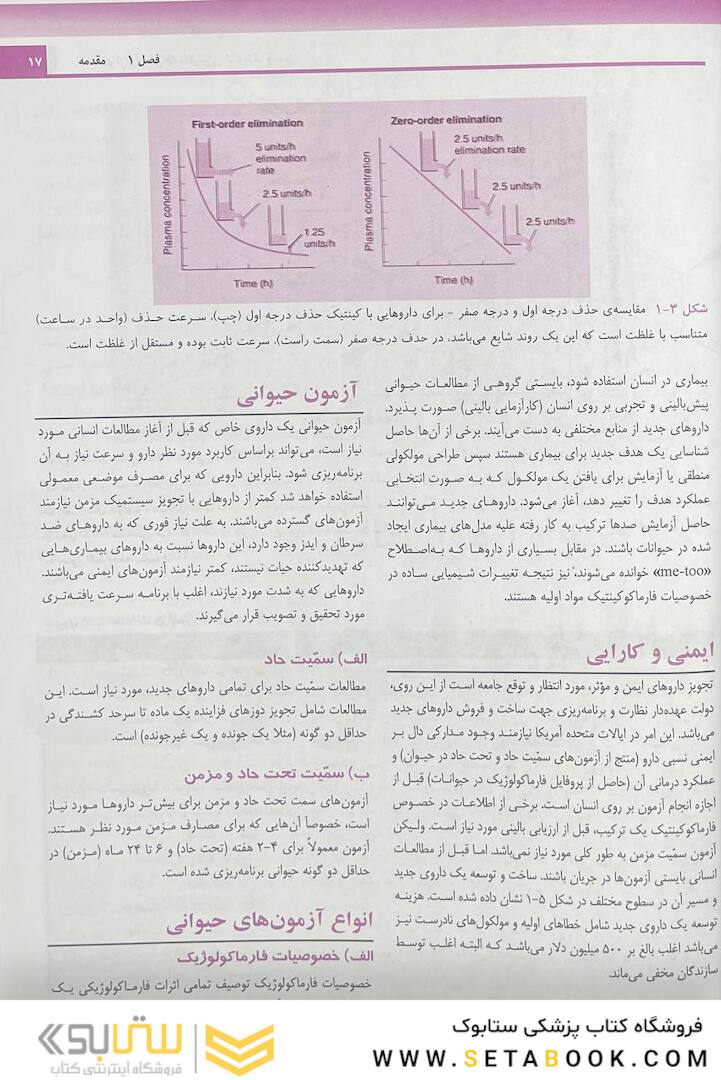 فصل ۱ مقدمه
۱۷
First-order elimination
5 units/h
elimination
rate
2.5 units/h
1.25
units/h
Plasma concentration
Time (h)
Zero-order elimination
2.5 units/h
elimination rate
2.5 units/h
2.5 units/h
Plasma concentration
Time (h)
شکل ۳-۱ مقایسه‌ی حذف درجه اول و درجه صفر - برای داروهایی با کینتیک حذف درجه اول (چپ)، سرعت حذف (واحد در ساعت)
متناسب با غلظت است که این یک روند شایع می‌باشد، در حذف درجه صفر (سمت راست)، سرعت ثابت بوده و مستقل از غلظت است.
بیماری در انسان استفاده شود، بایستی گروهی از مطالعات حیوانی
پیش‌بالینی و تجربی بر روی انسان (کارآزمایی بالینی) صورت پذیرد.
داروهای جدید از منابع مختلفی به دست می‌آیند. برخی از آن‌ها حاصل
شناسایی یک هدف جدید برای بیماری هستند سپس طراحی مولکولی
منطقی یا آزمایش برای یافتن یک مولکول که به صورت انتخابی
عملکرد هدف را تغییر دهد، آغاز می‌شود. داروهای جدید می‌توانند
حاصل آزمایش صدها ترکیب به کار رفته علیه مدل‌های بیماری ایجاد
شده در حیوانات باشند. در مقابل بسیاری از داروها که به‌اصطلاح
«me-too» خوانده می‌شوند، نیز نتیجه تغییرات شیمیایی ساده در
خصوصیات فارماکوکینتیک مواد اولیه هستند.
ایمنی و کارایی
تجویز داروهای ایمن و مؤثر، مورد انتظار و توقع جامعه است از این روی،
دولت عهده‌دار نظارت و برنامه‌ریزی جهت ساخت و فروش داروهای جدید
می‌باشد. این امر در ایالات متحده آمریکا نیازمند وجود مدارکی دال بر
ایمنی نسبی دارو (منتج از آزمون‌های سمّیت حاد و تحت حاد در حیوان) و
عملکرد درمانی آن (حاصل از پروفایل فارماکولوژیک در حیوانات) قبل از
اجازه انجام آزمون بر روی انسان است. برخی از اطلاعات در خصوص
فارماکوکینتیک یک ترکیب، قبل از ارزیابی بالینی مورد نیاز است. ولیکن
آزمون سمّیت مزمن به طور کلی مورد نیاز نمی‌باشد. اما قبل از مطالعات
انسانی بایستی آزمون‌ها در جریان باشند. ساخت و توسعه یک داروی جدید
و مسیر آن در سطوح مختلف در شکل ۵-۱ نشان داده شده است. هزینه
توسعه یک داروی جدید شامل خطاهای اولیه و مولکول‌های نادرست نیز
می‌باشد اغلب بالغ بر ۵۰۰ میلیون دلار می‌باشد که البته اغلب توسط
سازندگان مخفی می‌ماند.
آزمون حیوانی
آزمون حیوانی یک داروی خاص که قبل از آغاز مطالعات انسانی مورد
نیاز است، می‌تواند براساس کاربرد مورد نظر دارو و سرعت نیاز به آن
برنامه‌ریزی شود. بنابراین دارویی که برای مصرف موضعی معمولی
استفاده خواهد شد کمتر از داروهایی با تجویز سیستمیک مزمن نیازمند
آزمون‌های گسترده می‌باشند. به علت نیاز فوری که به داروهای ضد
سرطان و ایدز وجود دارد، این داروها نسبت به داروهای بیماری‌هایی
که تهدیدکننده حیات نیستند، کمتر نیازمند آزمون‌های ایمنی می‌باشند.
داروهایی که به شدت مورد نیازند، اغلب با برنامه سرعت یافته‌تری
مورد تحقیق و تصویب قرار می‌گیرند.
الف) سمّیت حاد
مطالعات سمّیت حاد برای تمامی داروهای جدید، مورد نیاز است. این
مطالعات شامل تجویز دوزهای فزاینده یک ماده تا سرحد کشندگی در
حداقل دو گونه (مثلا یک جونده و یک غیرجونده) است.
ب) سمّیت تحت حاد و مزمن
آزمون‌های سمت تحت حاد و مزمن برای بیش‌تر داروها مورد نیاز
است، خصوصاً آن‌هایی که برای مصارف مزمن مورد نظر هستند.
آزمون معمولاً برای ۴-۲ هفته (تحت حاد) و ۶ تا ۲۴ ماه (مزمن) در
حداقل دو گونه حیوانی برنامه‌ریزی شده است.
انواع آزمون‌های حیوانی
الف) خصوصیات فارماکولوژیک
خصوصیات فارماکولوژیک توصیف تمامی اثرات فارماکولوژیکی یک
فروشگاه کتاب پزشکی ستابوک
WWW.SETABOOK.COM
ستابوک
فروشگاه اینترنتی کتاب